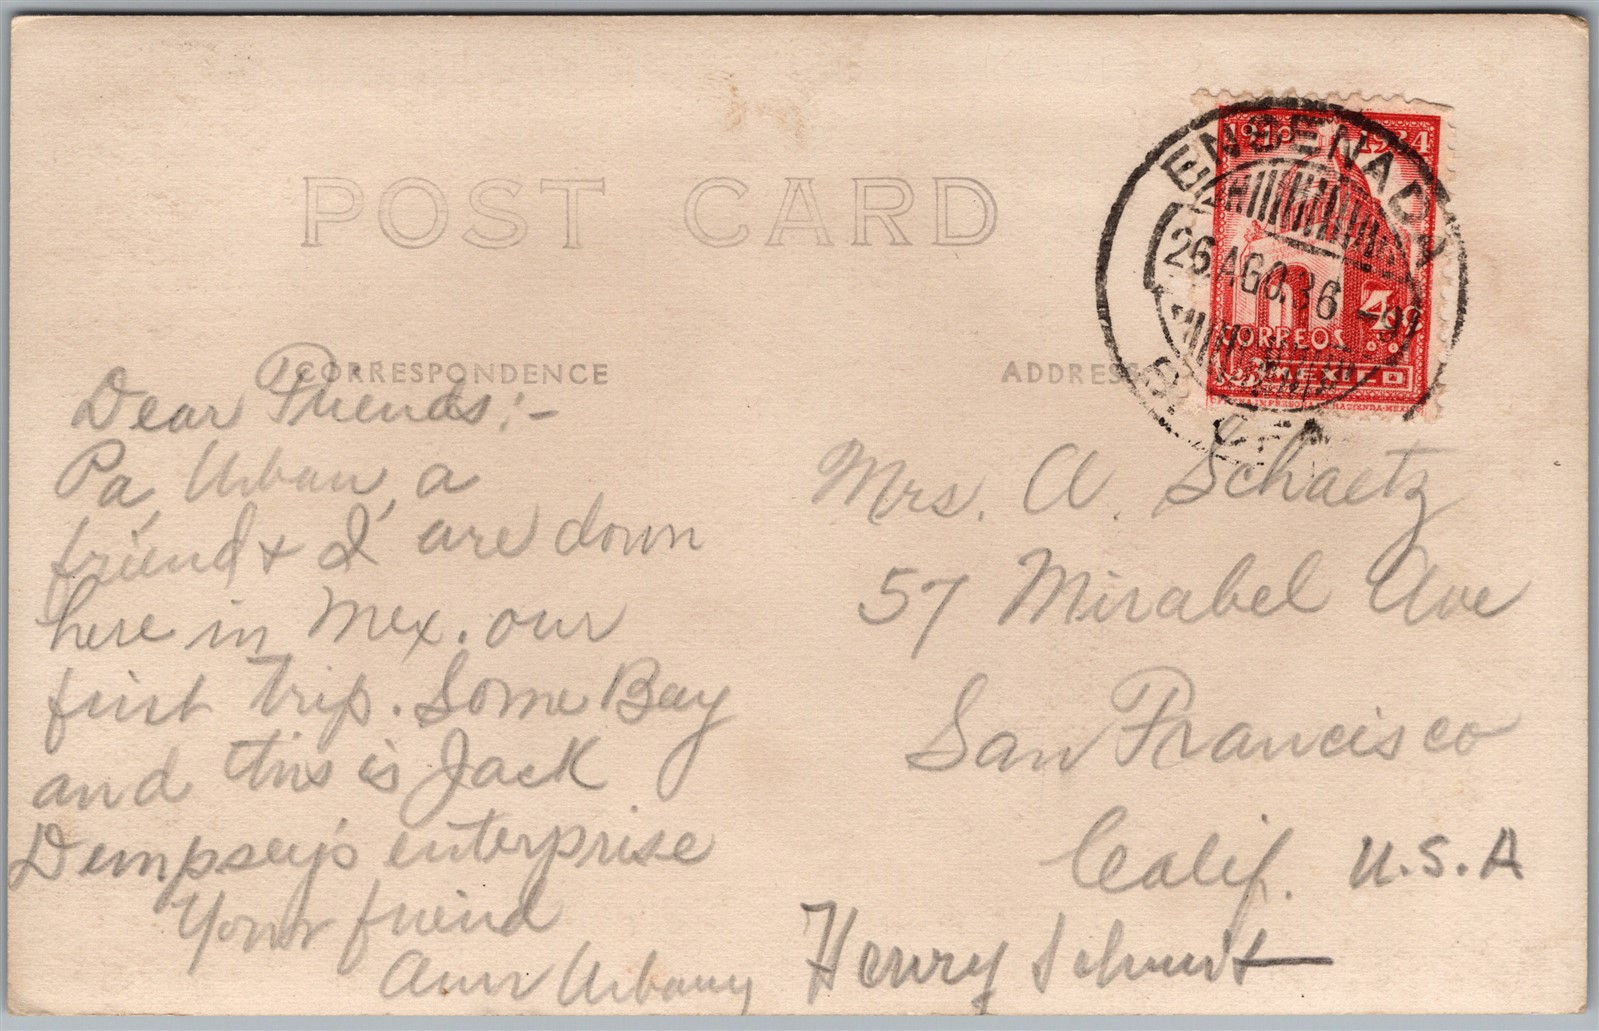 POST CARD
ENSENADA
26 AGO. 36
1910 1934
CORREOS
MEXICO
CORRESPONDENCE
ADDRESS
Dear Friends:-
Pa Urban, a
friend & I are down
here in Mex. our
first trip. Some Bay
and this is Jack
Dempsey's enterprise
Your friend
Ann Urbany
Mrs. A. Schaetz
57 Mirabel Ave
San Francisco
Calif. U.S.A
Henry Schmit